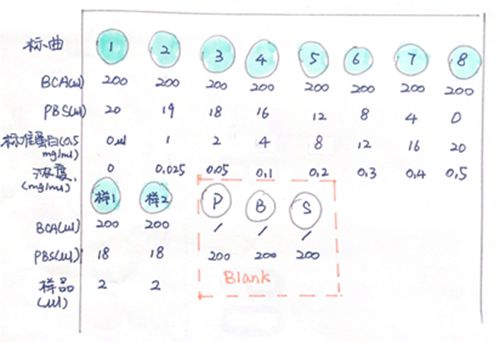 标曲 1 2 3 4 5 6 7 8
BCA(ul) 200 200 200 200 200 200 200 200
PBS(ul) 20 19 18 16 12 8 4 0
标准蛋白(0.5 mg/ml) 0ul 1 2 4 8 12 16 20
浓度(mg/ml) 0 0.025 0.05 0.1 0.2 0.3 0.4 0.5
样1 样2 P B S
BCA(ul) 200 200 / / /
PBS(ul) 18 18 200 200 200
样品(ul) 2 2
Blank